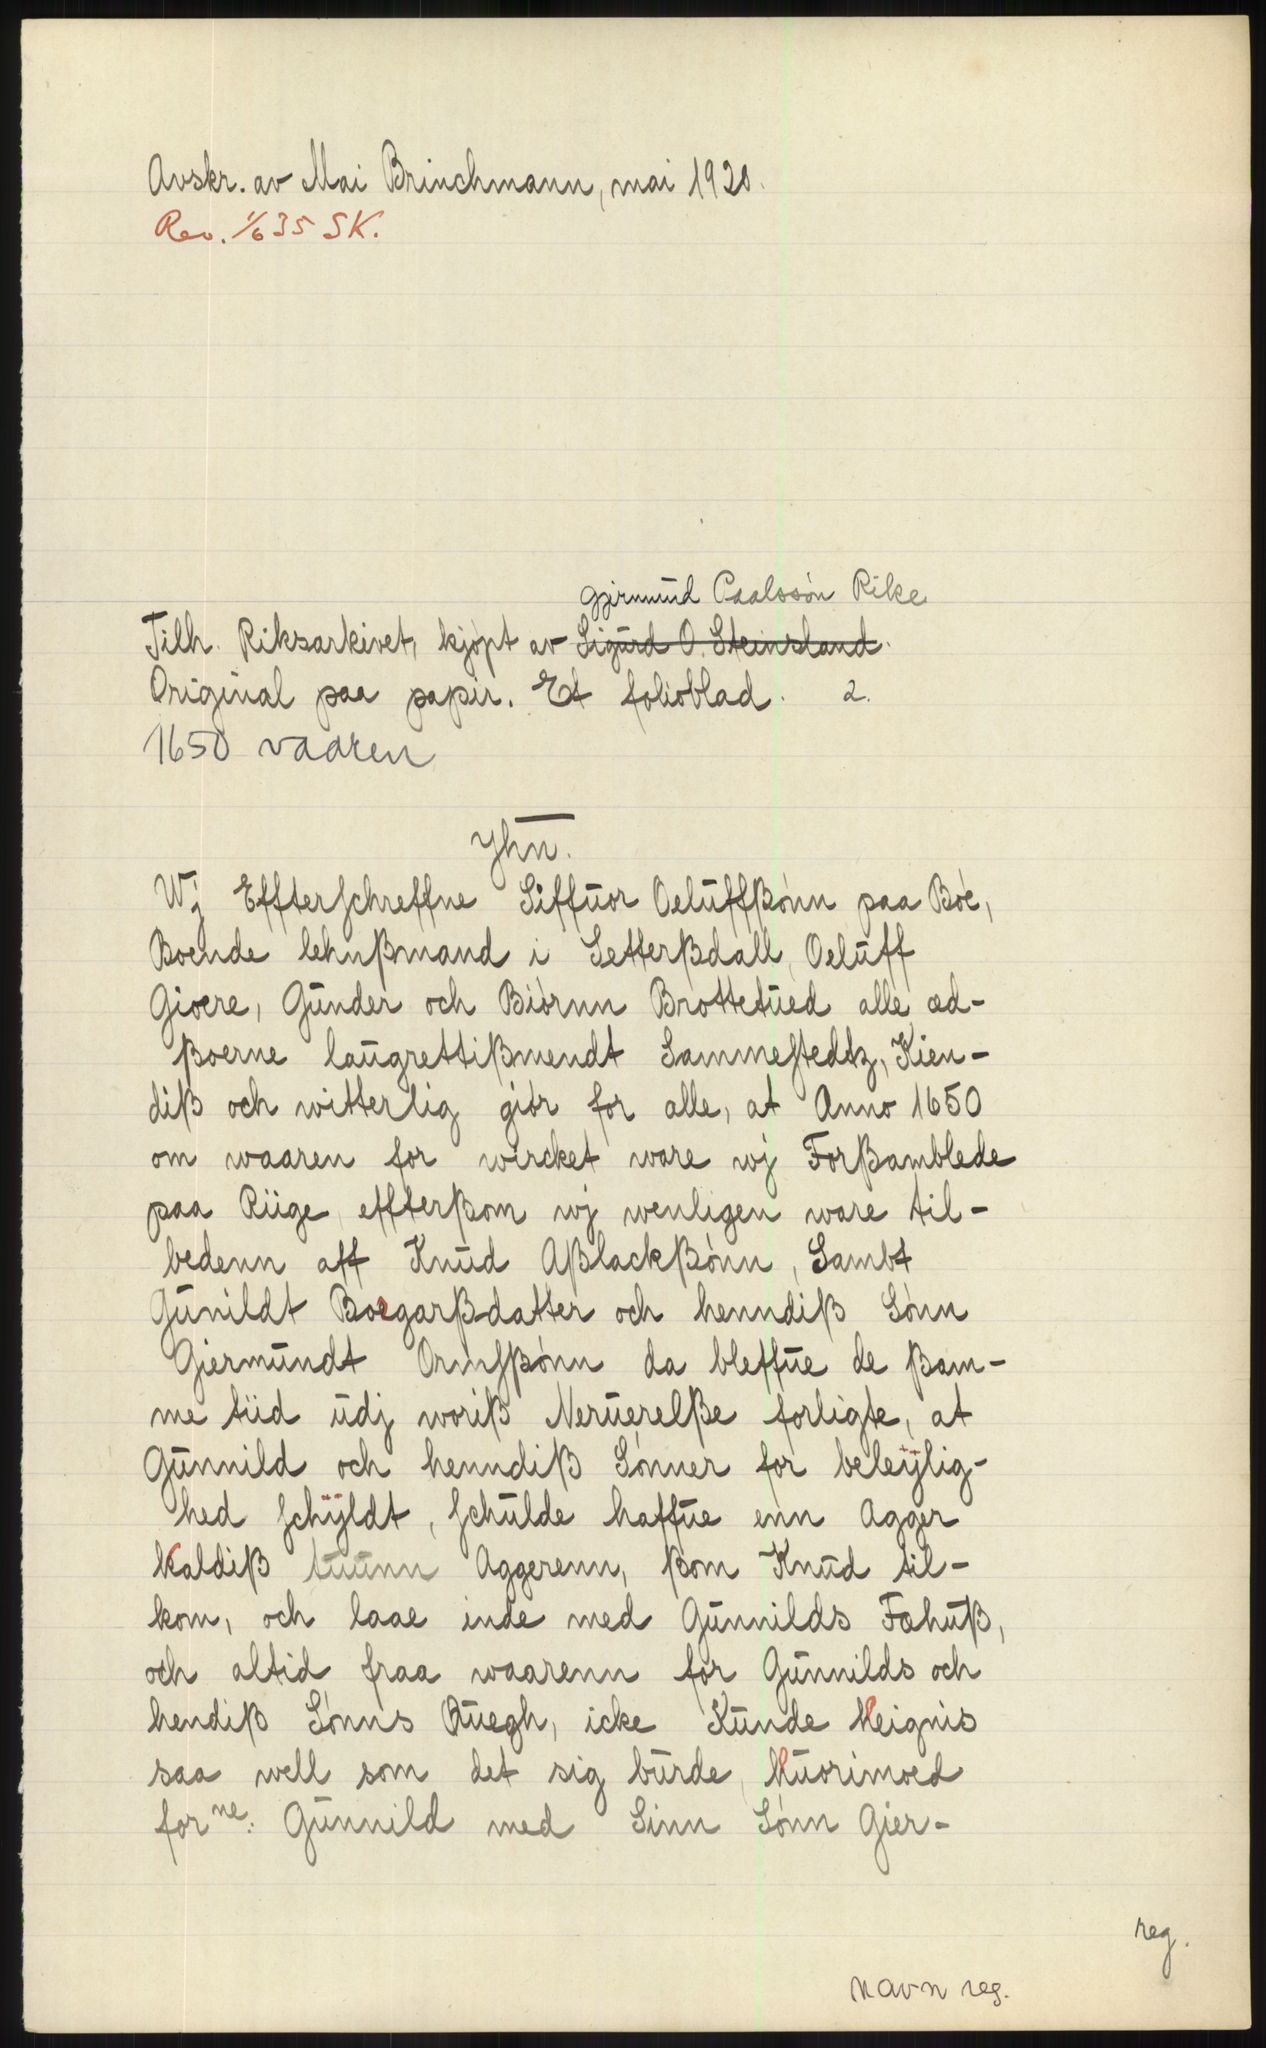 Avskr. av Mai Brinchmann, mai 1920.
Rev. 1/6 35 SK.
Gjermund Paalssøn Rike
Tilh. Riksarkivet, kjøpt av Sigurd O. Steinsland.
Original paa papir. Et folioblad. 2.
1650 vaaren
Yhn.
Wj Effterschreffne Siffuor Oeluffßønn paa Boe,
Boende lehnßmand i Setterßdall, Oeluff
Gioere, Gunder och Biørnn Brottetued alle æd-
ßoerne laugrettißmendt Sammestedtz, Kien-
diß och witterlig giør for alle, at Anno 1650
om waaren for wircket ware wj Forßamblede
paa Riige effterßom wj wenligen ware til-
bedenn aff Knud Aßlackßønn, Sambt
Gunildt Boegarßdatter och henndiß Sønn
Giermundt Ormsßønn da bleffue de ßam-
me tiid udj woriß Neruerelße forligte, at
Gunnild och henndiß Sønner for beleÿlig-
hed schÿldt, schulde haffue enn Agger
kaldiß tuunn Aggerenn, ßom Knud til-
kom, och laae inde med Gunnilds Fæhuß,
och altid fraa waarenn for Gunnilds och
hendiß Sønns Quegh, icke Kunde Heignis
saa well som det sig burde, Huorimoed
forne: Gunnild med Sinn Sønn Gier-
reg.
navn reg.